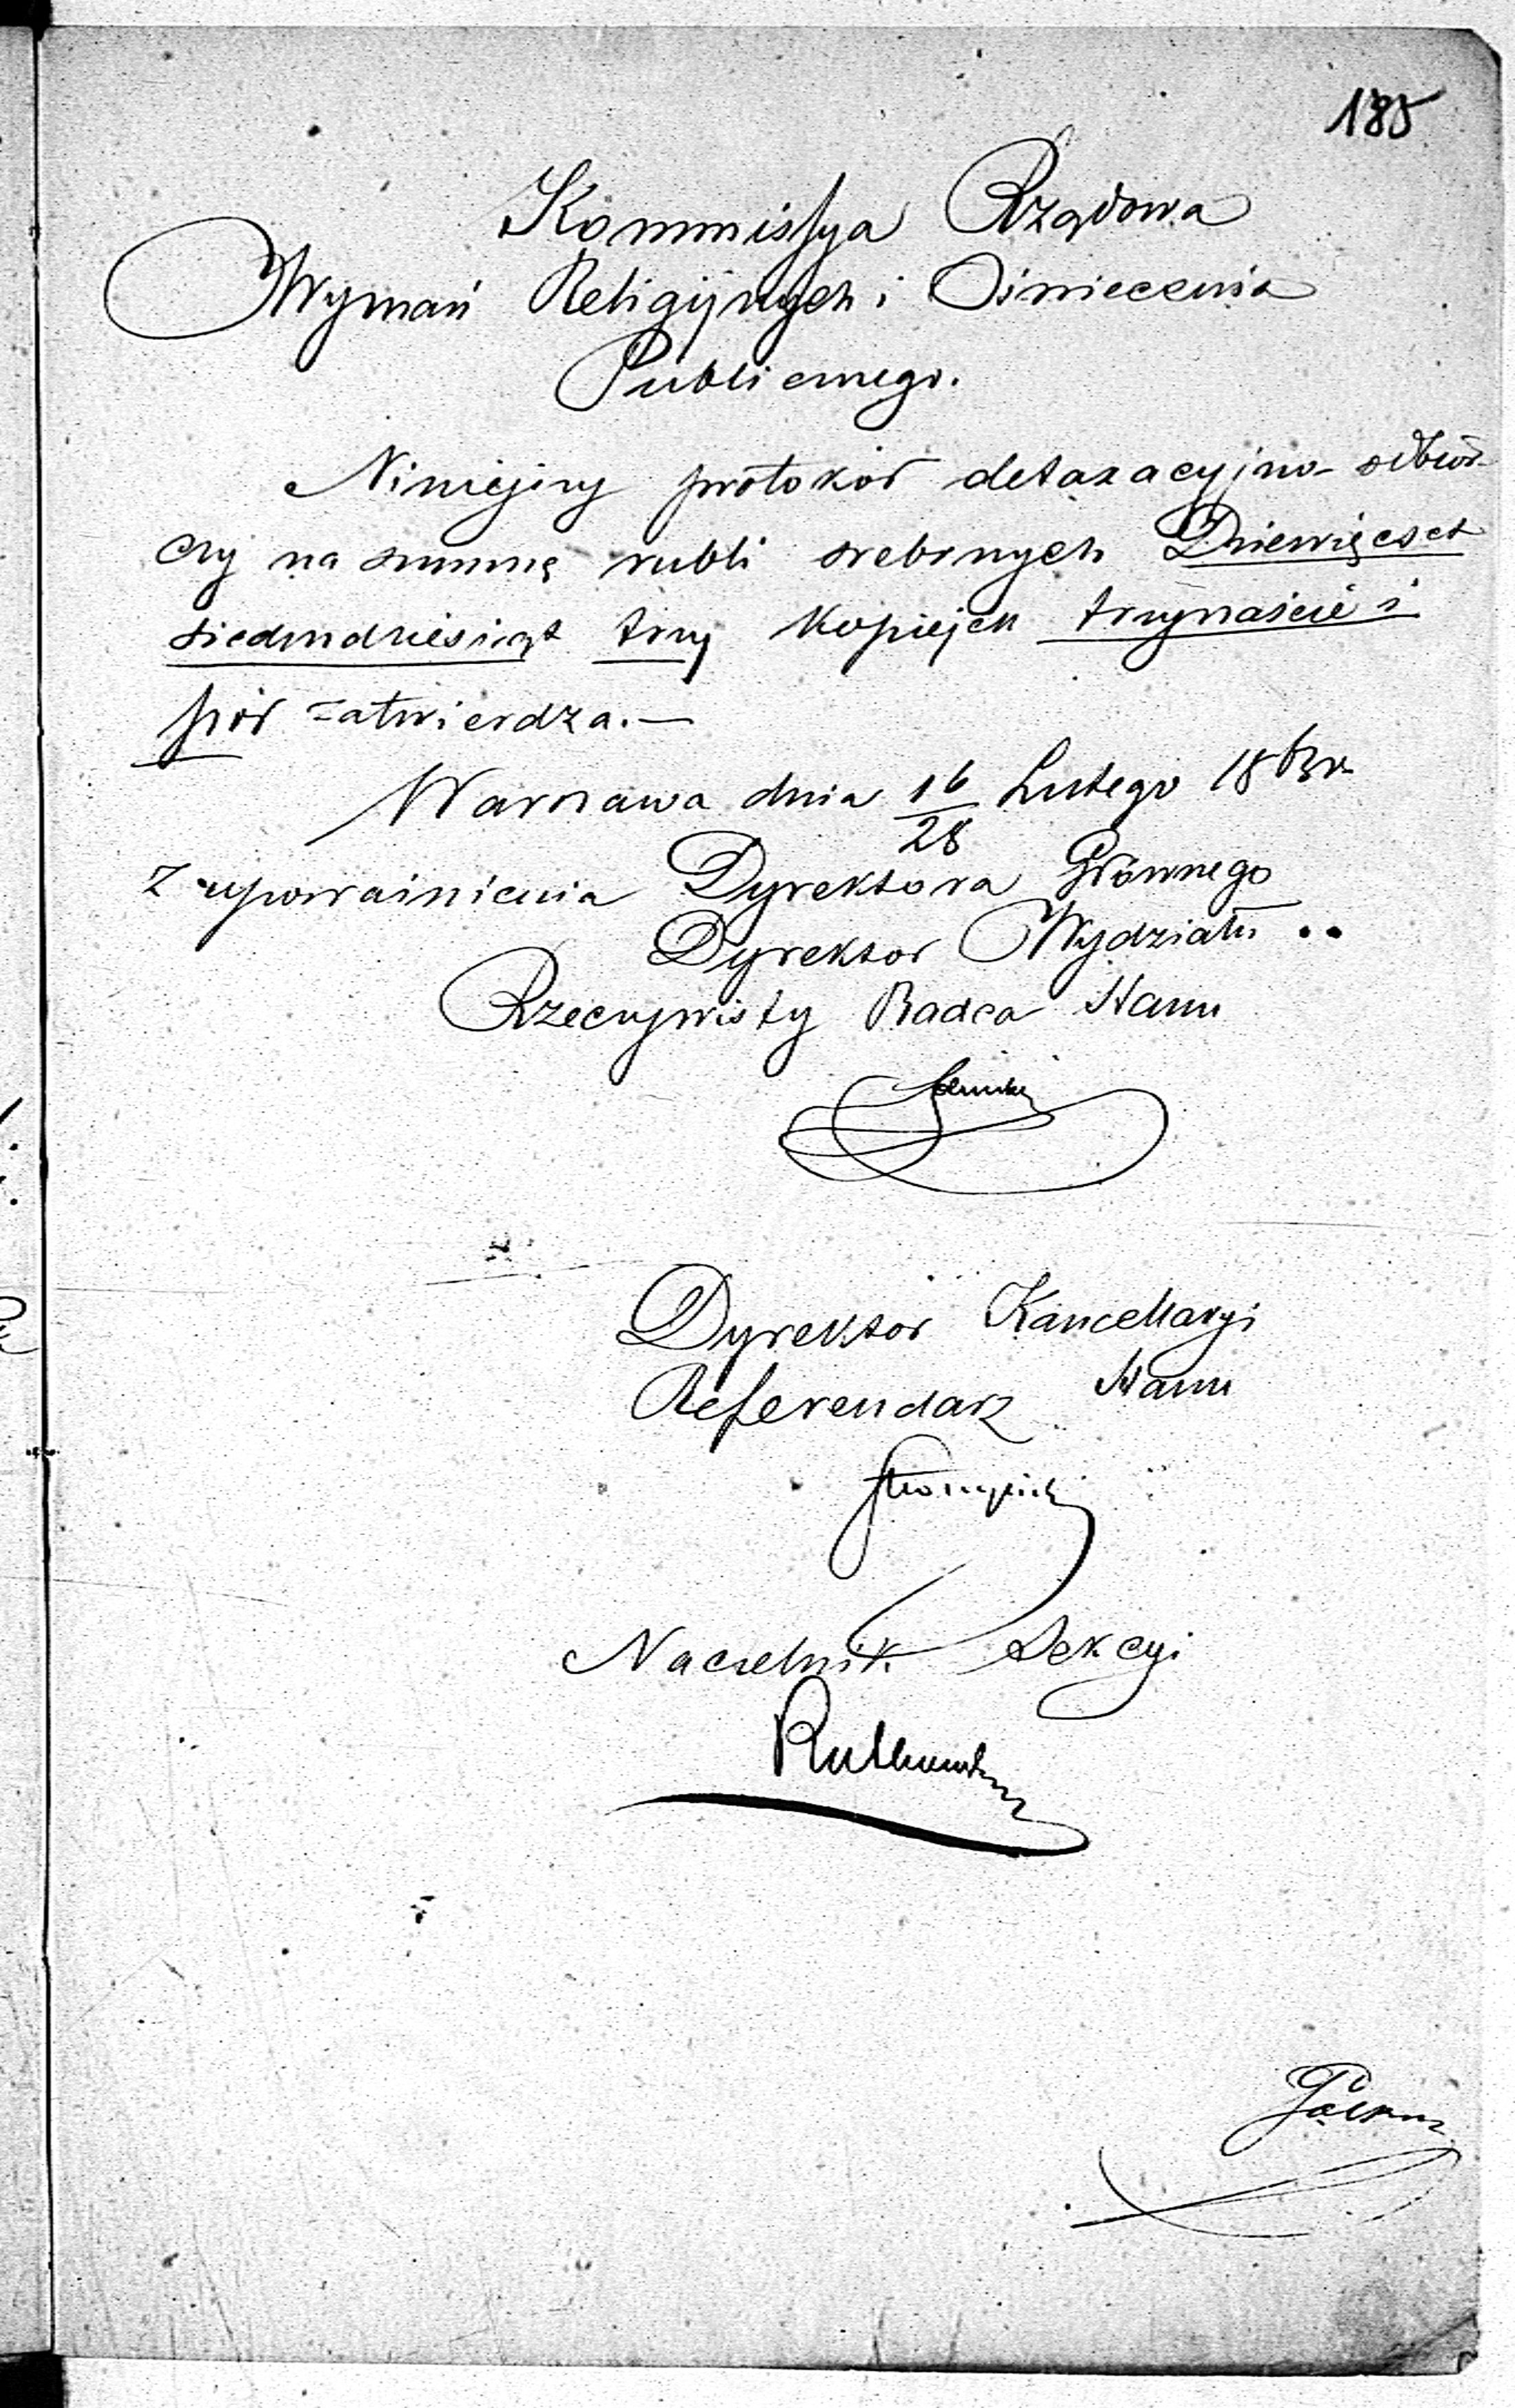 185
Kommissya Rządowa
Wyznań Religijnych i Oświecenia
Publicznego.
Niniejszy protokół detaxacyjno-odbior-
czy na summę rubli srebrnych Dziewięćset
siedmdziesiąt trzy kopiejek trzynaście i
pół zatwierdza.—
Warszawa dnia 16/28 Lutego 1863 r.
Z upoważnienia Dyrektora Głównego
Dyrektor Wydziału
Rzeczywisty Radca Stanu
Dyrektor Kancellaryi
Referendarz Stanu
Naczelnik Sekcyi
Rutkowski